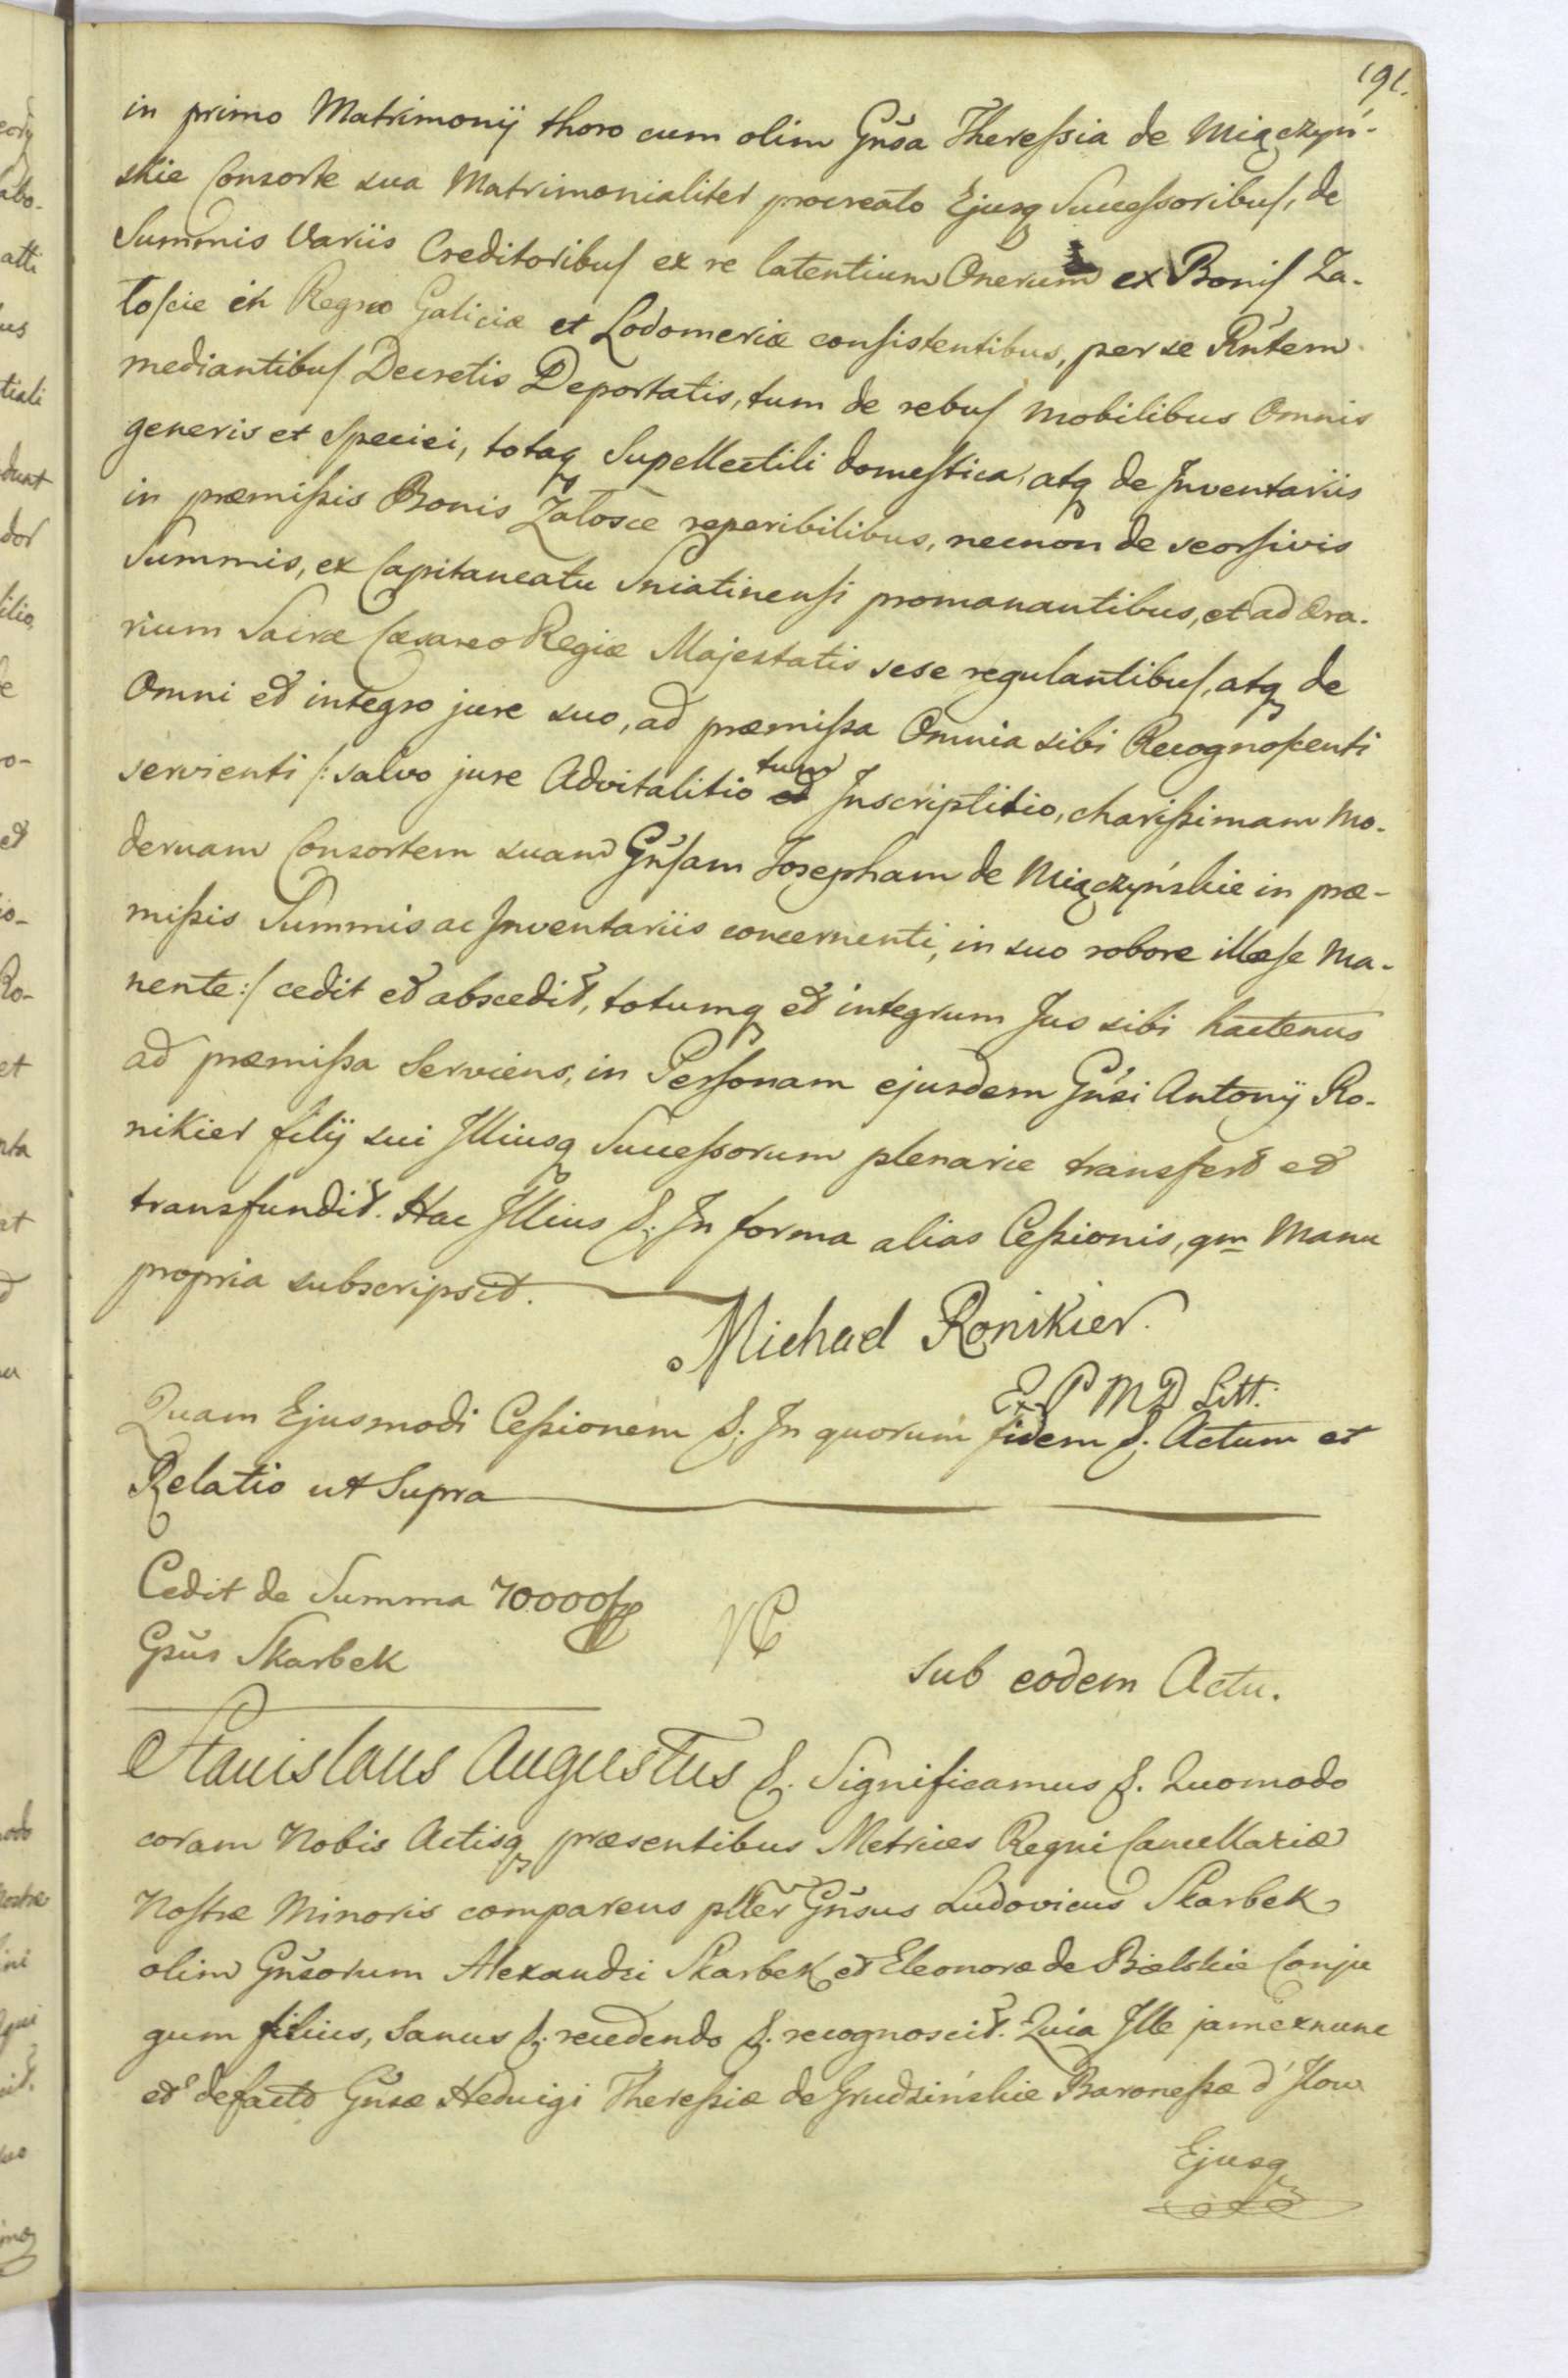 191.
in primo Matrimonij thoro cum olim Gn̄sa Theressia de Miączyń-
skie Consorte sua Matrimonialiter procreato Ejusq Successoribus, de
Summis Variis Creditoribus ex re latentium Onerum ex Bonis Za-
łoscie in Regno Galiciæ et Lodomeriæ consistentibus, per se Rn̄tem
mediantibus Decretis Deportatis, tum de rebus mobilibus Omnis
generis et Speciei, totaq Supellectili domestica, atq de Inventariis
in præmissis Bonis Załosce reperibilibus, necnon de seorsivis
Summis, ex Capitaneatu Sniatinensi promanantibus, et ad Æra-
rium Sacræ Cæsareo Regiæ Majestatis sese regulantibus, atq de
Omni et integro jure suo, ad præmissa Omnia sibi Recognoscenti
servienti /: salvo jure Advitalitio tum Inscriptitio, charissimam Mo-
dernam Consortem suam Gn̄sam Josepham de Miączyńskie in præ-
missis Summis ac Inventariis concernenti, in suo robore illæse Ma-
nente :/ cedit et abscedit, totumq et integrum Jus sibi hactenus
ad præmissa Serviens, in Personam ejusdem Gn̄si Antonij Ro-
nikier filij sui Illiusq Successorum plenarie transfert et
transfundit. Hac Illius &. In forma alias Cessionis, qm Manu
propria subscripsit.
Michael Ronikier.
E. P M D Litt:
Quam Ejusmodi Cessionem &. In quorum fidem &. Actum et
Relatio ut Supra
Cedit de Summa 70000
Gsūs Skarbek
sub eodem Actu.
Stanislaus Augustus &. Significamus &. Quomodo
coram Nobis Actisq præsentibus Metrices Regni Cancellariæ
Nostræ Minoris comparens pller Gn̄sus Ludovicus Skarbek
olim Gn̄sorum Alexandri Skarbek et Eleonoræ de Bielskie Conju
gum filius, Sanus &. recedendo &. recognoscit. Quia Ille jamexnunc
et defacto Gn̄sæ Hedvigi Theressiæ de Grudzińskie Baronessæ d'Ilow
Ejusq